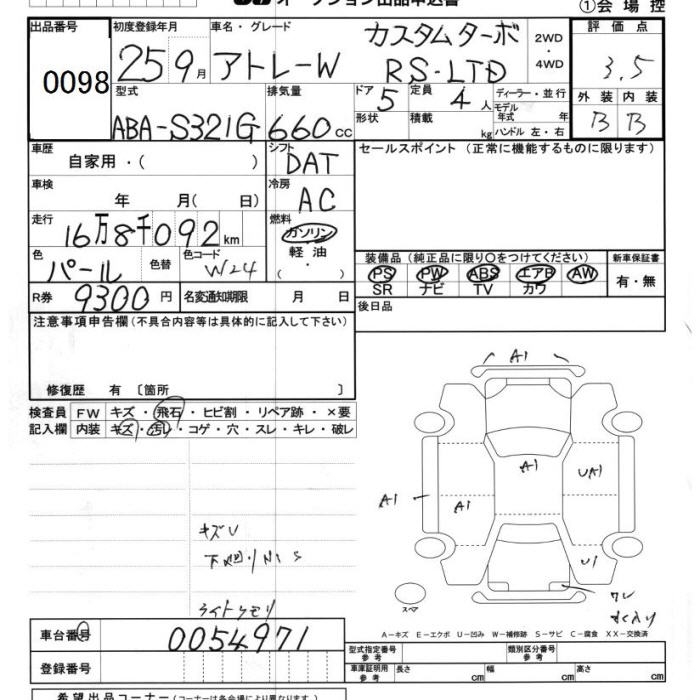 オークション出品申込書
①会場控
出品番号 0098
初度登録年月 25 9月
車名・グレード アトレーW カスタムターボ RS-LTD
2WD・4WD
評価点 3.5
外装 B 内装 B
型式 ABA-S321G
排気量 660cc
ドア 5
定員 4人
形状
積載 kg
ディーラー・並行
モデル年式 年
ハンドル 左・右
車歴 自家用・( )
シフト DAT
セールスポイント(正常に機能するものに限ります)
車検 年 月( 日)
冷房 AC
走行 16万8千092km
燃料 ガソリン 軽油
色 パール 色替
色コード W24
装備品(純正品に限り○をつけてください)
PS PW ABS エアB AW
SR ナビ TV カワ
新車保証書 有・無
R券 9300円
名変通知期限 月 日
後日品
注意事項申告欄(不具合内容等は具体的に記入して下さい)
修復歴 有〔箇所 〕
検査員記入欄
FW キズ・飛石・ヒビ割・リペア跡・×要
内装 キズ・汚レ・コゲ・穴・スレ・キレ・破レ
A1
A1
UA1
A1
A1
U1
キズU
下廻りサビS
ライトクモリ
スペア
ワレ
A-キズ E-エクボ U-凹み W-補修跡 S-サビ C-腐食 XX-交換済
車台番号 0054971
登録番号
型式指定番号 参考
類別区分番号 参考
車庫証明用 参考 長さ cm 幅 cm 高さ cm
希望出品コーナー(コーナーは各会場により異なります)